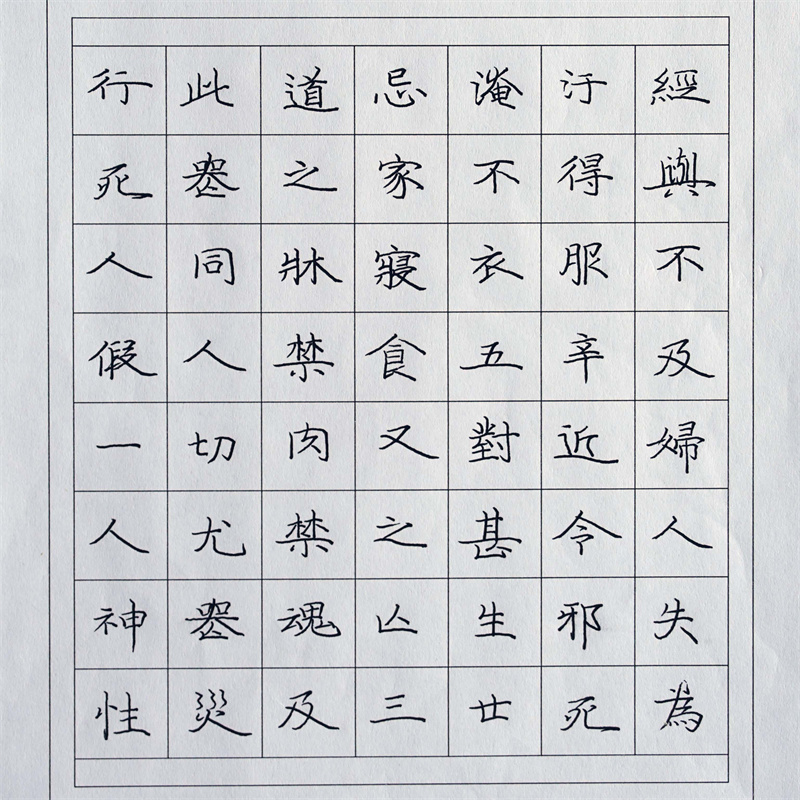 行此道忌淹汙經
死喪之家不得與
人同牀寢衣服不
假人禁食五辛及
一切肉又對近婦
人尤禁之甚令人
神喪魂亡生邪失
性災及三世死為